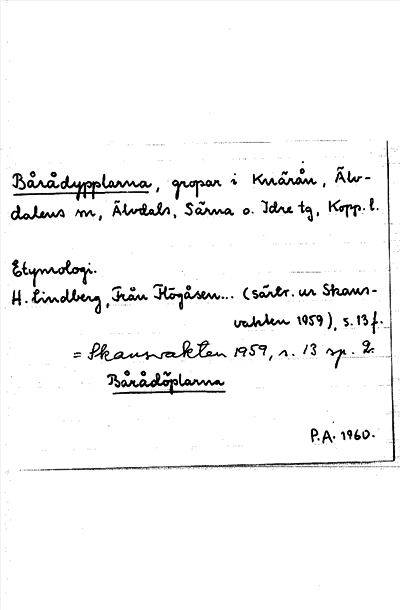 Bårådypplarna, gropar i Knärån, Älv-
dalens m, Älvdals, Särna o. Idre tg, Kopp. l.
Etymologi.
H. Lindberg, Från Högåsen... (särtr. ur Skans-
vakten 1959), s. 13 f.
= Skansvakten 1959, s. 13 sp. 2.
Bårådöplarna
P.A. 1960.